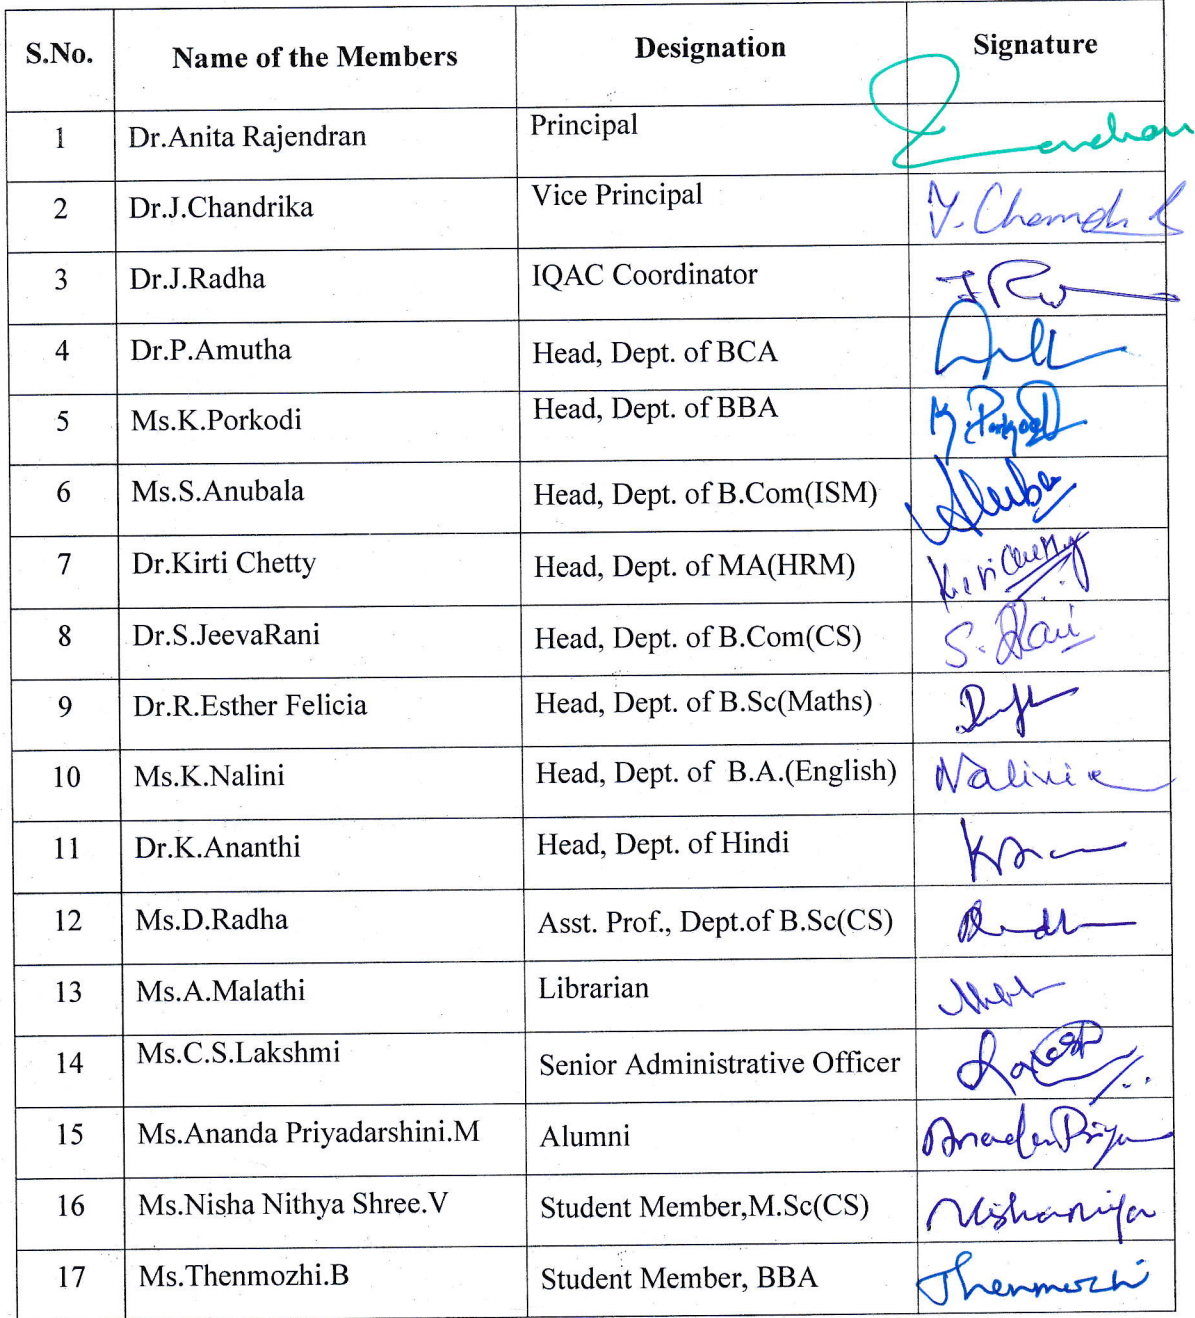 S.No. Name of the Members Designation Signature
1 Dr.Anita Rajendran Principal
2 Dr.J.Chandrika Vice Principal
3 Dr.J.Radha IQAC Coordinator
4 Dr.P.Amutha Head, Dept. of BCA
5 Ms.K.Porkodi Head, Dept. of BBA K.Porkodi
6 Ms.S.Anubala Head, Dept. of B.Com(ISM)
7 Dr.Kirti Chetty Head, Dept. of MA(HRM)
8 Dr.S.JeevaRani Head, Dept. of B.Com(CS)
9 Dr.R.Esther Felicia Head, Dept. of B.Sc(Maths)
10 Ms.K.Nalini Head, Dept. of B.A.(English) Nalini
11 Dr.K.Ananthi Head, Dept. of Hindi
12 Ms.D.Radha Asst. Prof., Dept.of B.Sc(CS)
13 Ms.A.Malathi Librarian
14 Ms.C.S.Lakshmi Senior Administrative Officer
15 Ms.Ananda Priyadarshini.M Alumni
16 Ms.Nisha Nithya Shree.V Student Member,M.Sc(CS)
17 Ms.Thenmozhi.B Student Member, BBA Thenmozhi